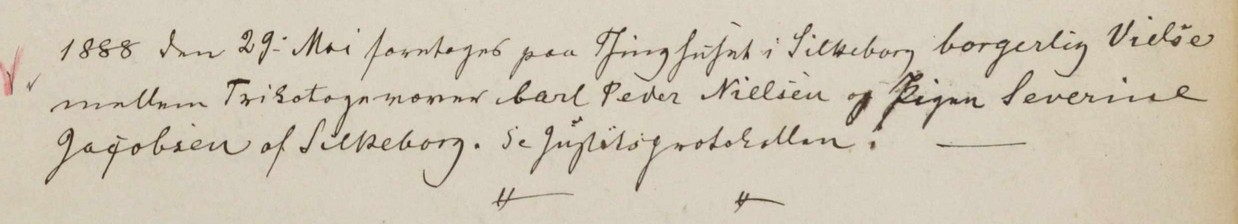 1888 den 29: Mai foretoges paa Thinghuset i Silkeborg borgerlig Vielse
mellem Trikotagevæver Carl Peder Nielsen og Pigen Severine
Jacobsen af Silkeborg. Se Justitsprotokollen!